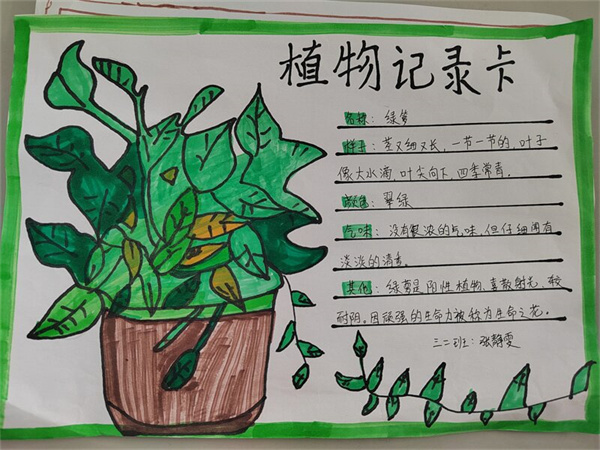 植物记录卡
名称：绿萝
样子：茎又细又长，一节一节的，叶子
像大水滴，叶尖向下，四季常青。
颜色：翠绿
气味：没有浓浓的气味，但仔细闻有
淡淡的清香。
其他：绿萝是阴性植物，喜散射光，较
耐阴。因顽强的生命力被称为生命之花。
三二班：张静雯